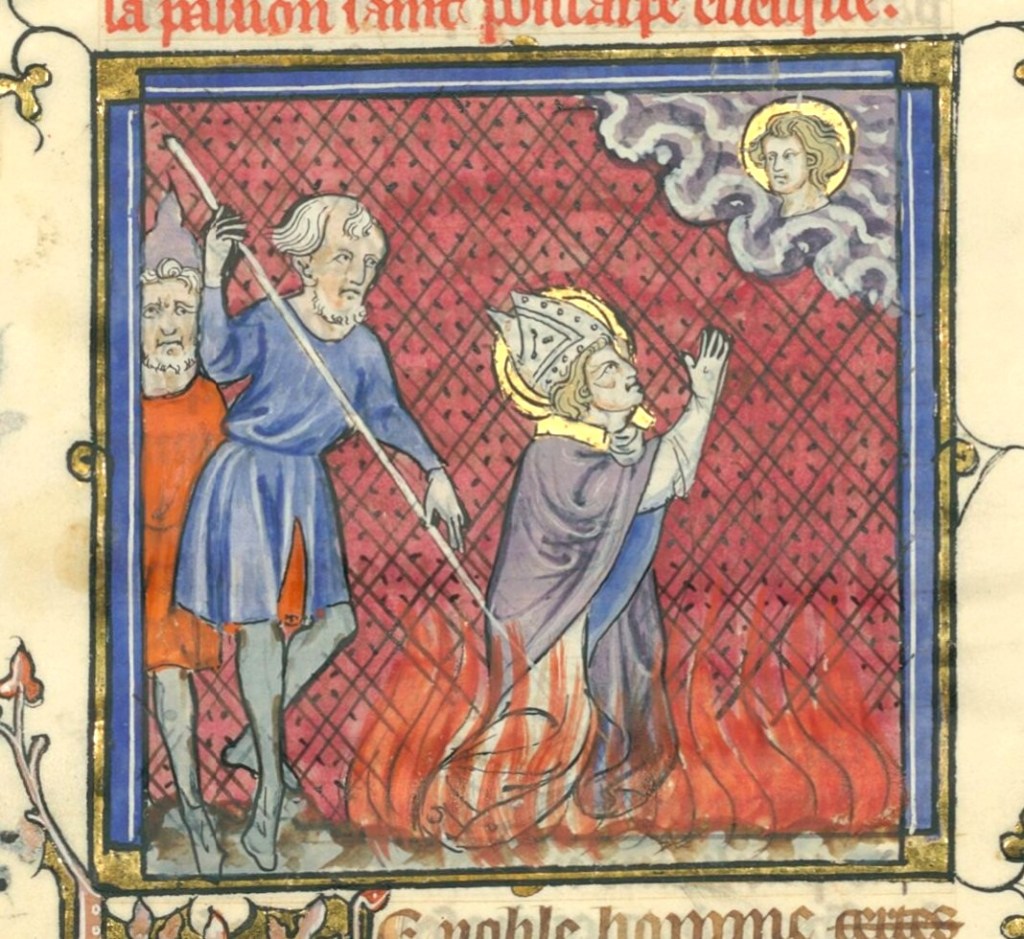 la passion saint policarpe euesque.
E noble homme certes